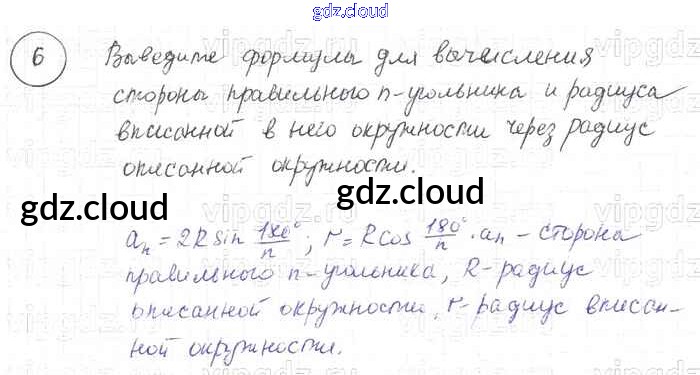 gdz.cloud
6 Выведите формулы для вычисления
стороны правильного n-угольника и радиуса
вписанной в него окружности через радиус
описанной окружности.
gdz.cloud
gdz.cloud
aₙ = 2R sin 180°/n ; r = R cos 180°/n · aₙ – сторона
правильного n-угольника, R-радиус
описанной окружности, r-радиус вписан-
ной окружности.
gdz.cloud